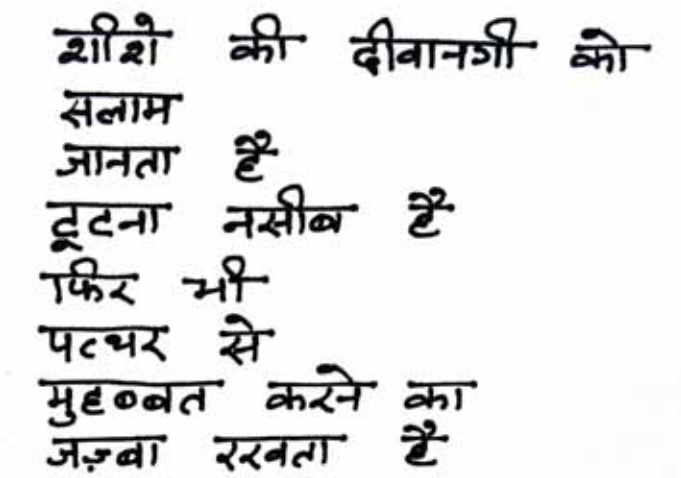 शीशे की दीवानगी को
सलाम
जानता है
टूटना नसीब है
फिर भी
पत्थर से
मुहब्बत करने का
जज़्बा रखता है